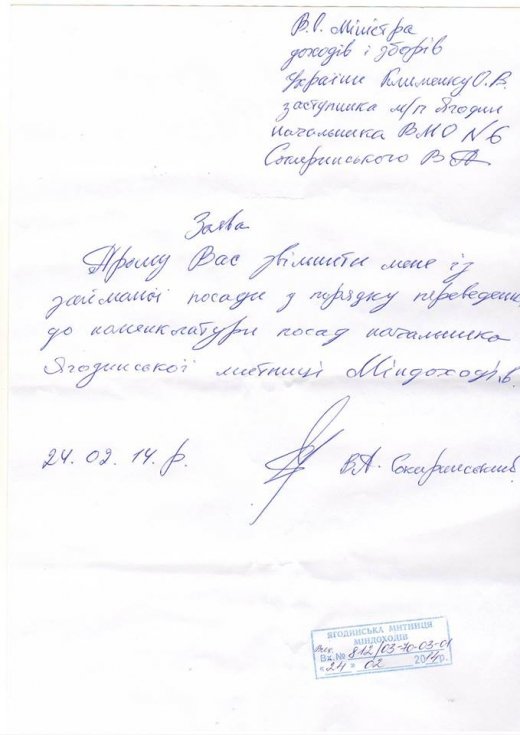 В.О. Міністра
доходів і зборів
України Клименку О.В.
заступника м/п Ягодин
начальника ВМО №6
Сокиринського В.А.
Заява
Прошу Вас звільнити мене із
займаної посади у порядку переведення
до номенклатури посад начальника
Ягодинської митниці Міндоходів.
24.02.14.р. В.А. Сокиринський
ЯГОДИНСЬКА МИТНИЦЯ
МІНДОХОДІВ
Вх.№ 812/03-70-03-01
"24" 02 2014р.